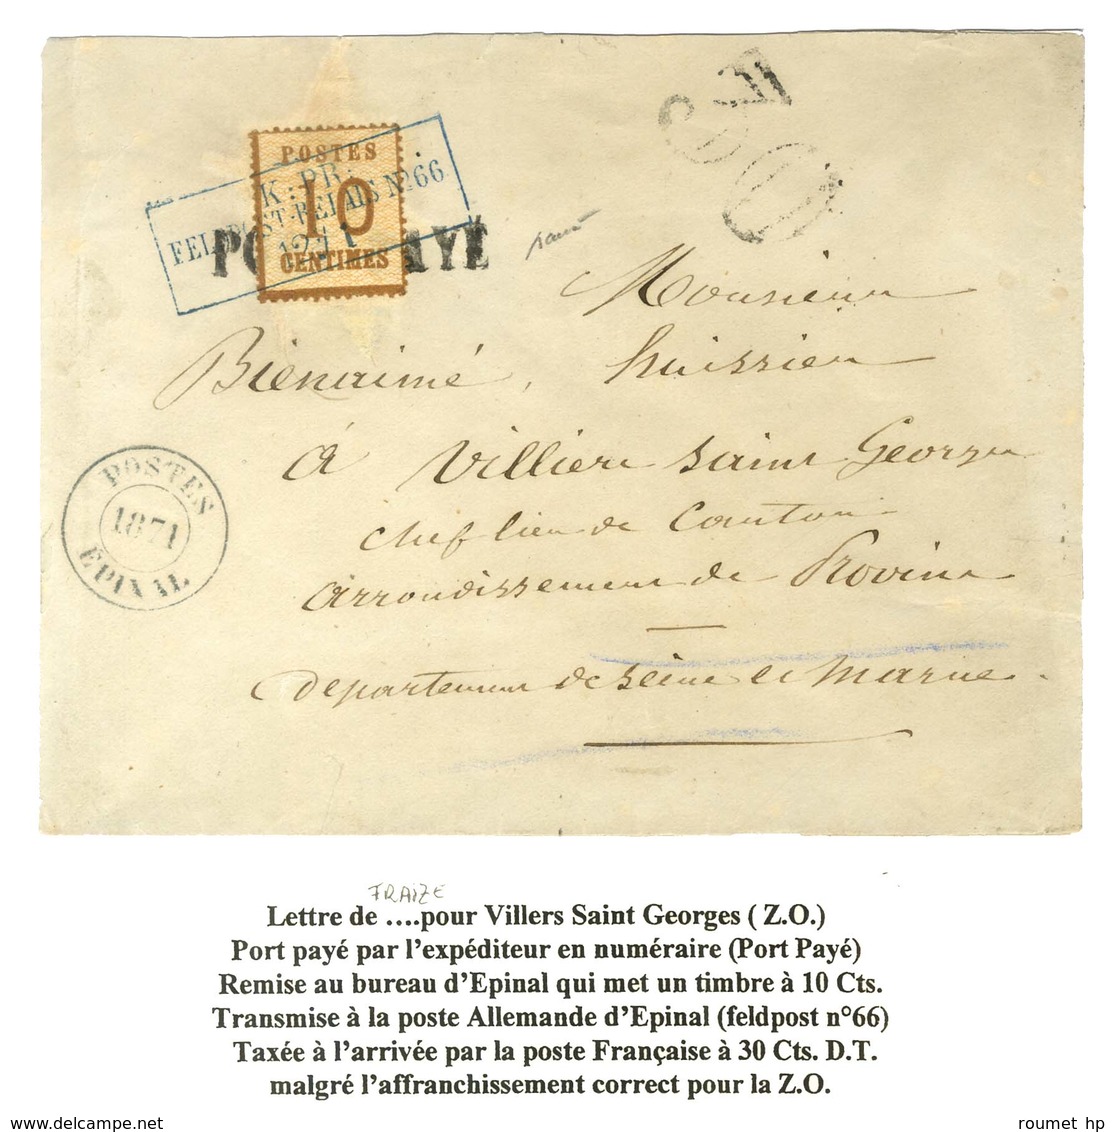 POSTES
10
CENTIMES
K: PR.
FELDPOST-RELAIS No 66
PO AYÉ
30
Monsieur
Bienaimé, huissier
à Villiers Saint Georges
chef lieu de Canton
arrondissement de Provins
departement de Seine et Marne.
POSTES
1871
ÉPINAL
FRAIZE
Lettre de ….pour Villers Saint Georges ( Z.O.)
Port payé par l'expéditeur en numéraire (Port Payé)
Remise au bureau d'Epinal qui met un timbre à 10 Cts.
Transmise à la poste Allemande d'Epinal (feldpost n°66)
Taxée à l'arrivée par la poste Française à 30 Cts. D.T.
malgré l'affranchissement correct pour la Z.O.
www.delcampe.net
roumet hp